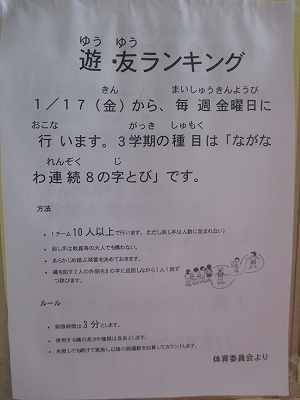 ゆう ゆう
遊・友ランキング
きん まいしゅうきんようび
1/17(金)から、毎週金曜日に
おこな がっき しゅもく
行います。3学期の種目は「ながな
れんぞく じ
わ連続8の字とび」です。
方法
• 1チーム10人以上で行います。ただし回し手は人数に含まれない)
• 回し手は教員等の大人でも構わない。
• あらかじめ跳ぶ順番を決めておきます。
• 縄を回す2人の外側を8の字に巡回しながら1人1回ず
つ跳びます。
ルール
• 制限時間は3分とします。
• 使用する縄の長さや種類は自由とします。
• 失敗しても続けて実施し以後の跳躍数を加算してカウントします。
体育委員会より